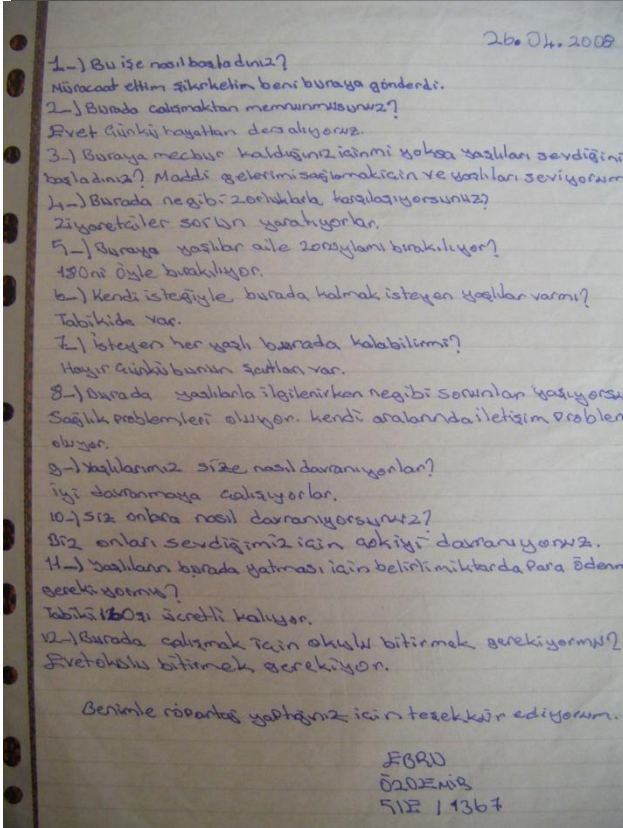 26.04.2008
1-) Bu işe nasıl başladınız?
Müracaat ettim şikrketim beni buraya gönderdi.
2-) Burada çalışmaktan memnunmusunuz?
Evet Çünkü hayattan ders alıyoruz.
3-) Buraya mecbur kaldığınız içinmi yoksa yaşlıları sevdiğini
başladınız? Maddi gelerimi sağlamak için ve yaşlıları seviyorum
4-) Burada ne gibi zorluklarla karşılaşıyorsunuz?
Ziyaretciler sorun yaratıyorlar.
5-) Buraya yaşlılar aile zoruylamı bırakılıyor?
180ni öyle bırakılıyor.
6-) Kendi isteğiyle burada kalmak isteyen yaşlılar varmı?
Tabikide var.
7-) İsteyen her yaşlı burada kalabilirmi?
Hayır Çünkü bunun şartları var.
8-) Burada yaşlılarla ilgilenirken negibi sorunlar yaşıyorsu
Sağlık problemleri oluyor. kendi aralarında iletişim problem
oluyor.
9-) Yaşlılarımız size nasıl davranıyorlar?
iyi davranmaya çalışıyorlar.
10-) Siz onlara nasıl davranıyorsunuz?
Biz onları sevdiğimiz için çokiyi davranıyoruz.
11-) Yaşlıların burada yatması için belirli miktarda Para ödenm
gerekiyormu?
Tabiki ücretli kalıyor.
12-) Burada çalışmak için okulu bitirmek gerekiyormu?
Evet okulu bitirmek gerekiyor.
Benimle röportaj yaptığınız için teşekkür ediyorum.
EBRU
ÖZDEMİR
5/E / 1367